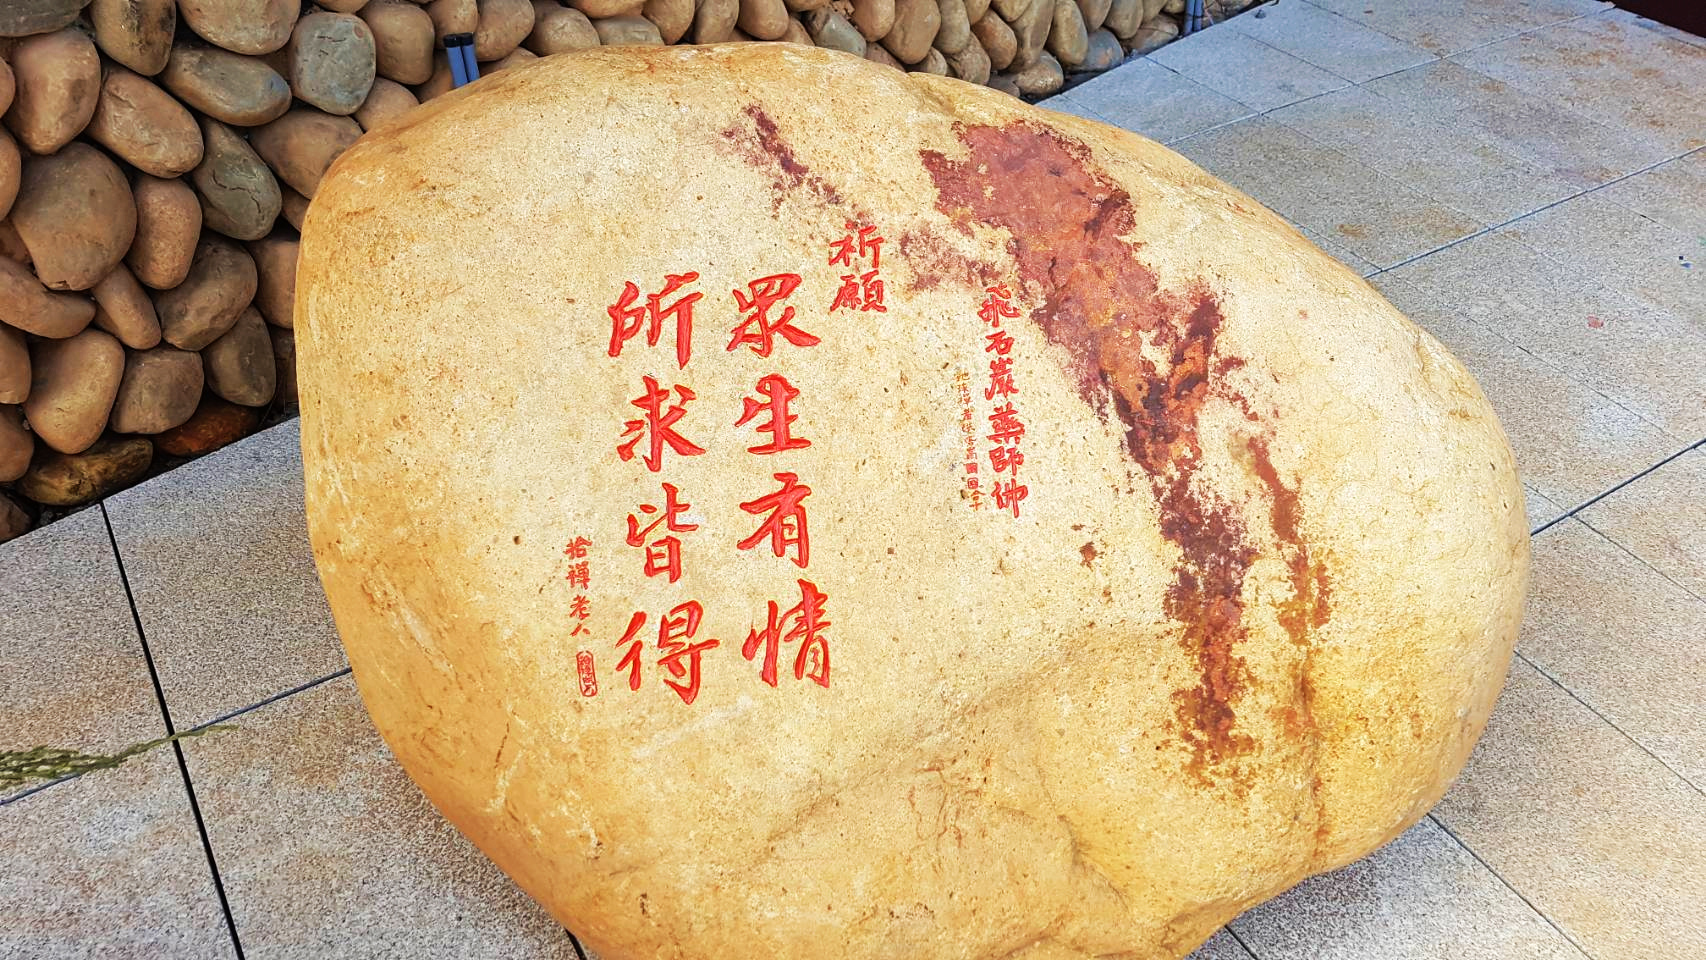 飛石巖藥師佛
祈願
眾生有情
所求皆得
拾禪老人